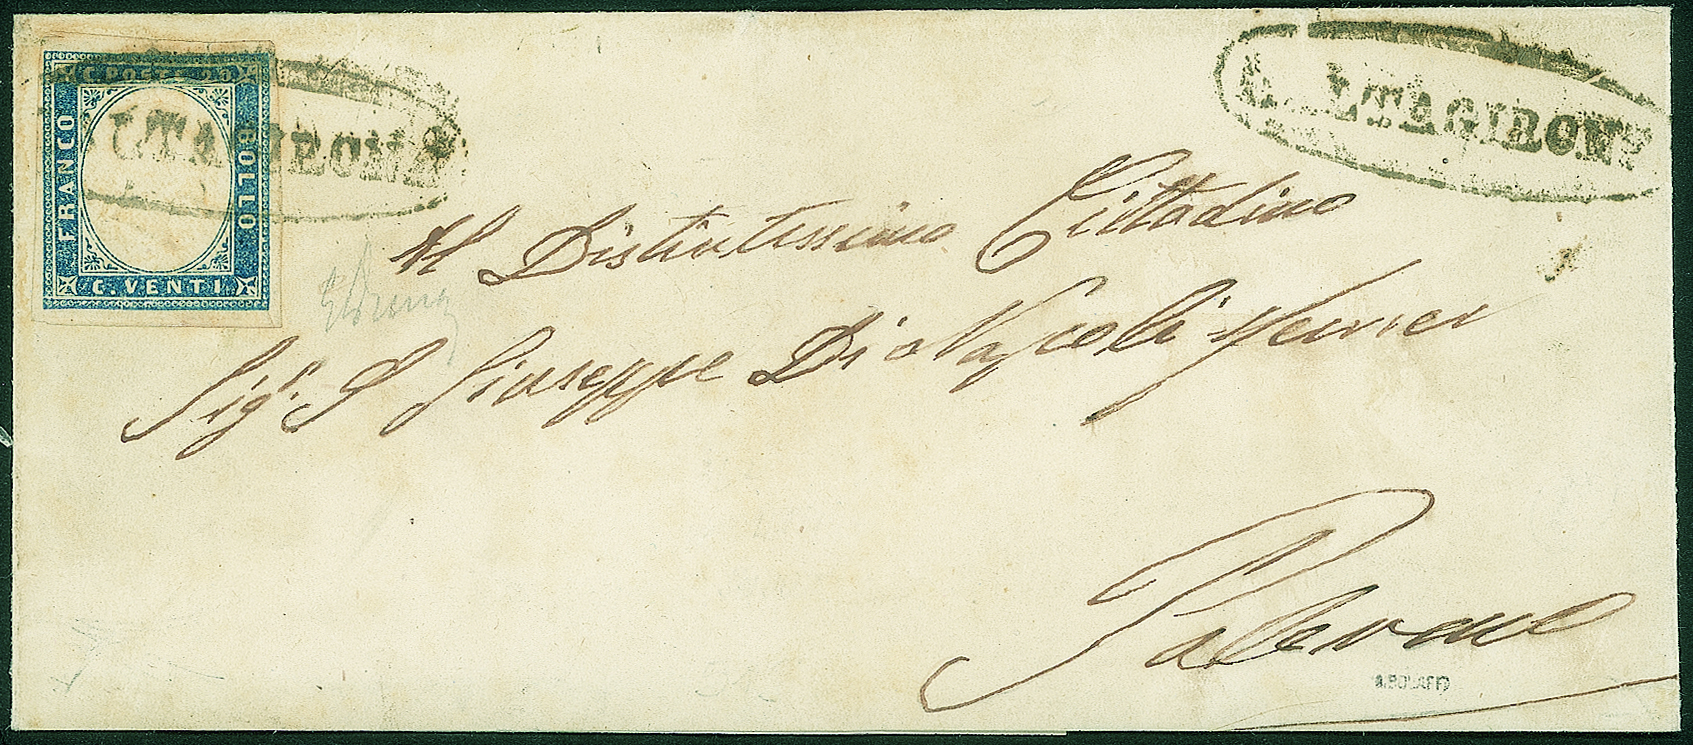 C. POSTE 20.
FRANCO
BOLLO
C. VENTI.
LTAGIRONE
CALTAGIRONE
Al Distintissimo Cittadino
Sigr. D. Giuseppe Di Napoli
Palermo
A. BOLAFFI